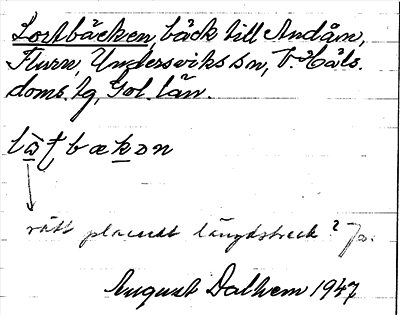 Lortbäcken, bäck till Andån,
Flurn, Undersviks sn, V. Häls.
doms. tg, Gvl. län.
rätt placerat längdstreck? Ja.
August Dalhem 1947